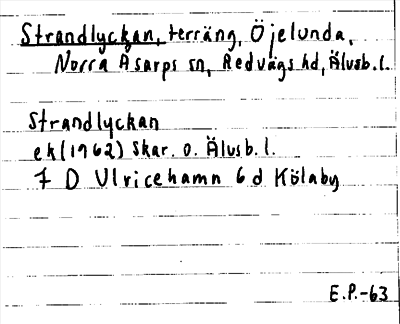 Strandlyckan, terräng, Öjelunda,
Norra Åsarps sn, Redvägs hd, Älvsb.l.
Strandlyckan
ek (1962) Skar. o. Älvsb.l.
7 D Ulricehamn 6 d Kölaby
E.P.-63